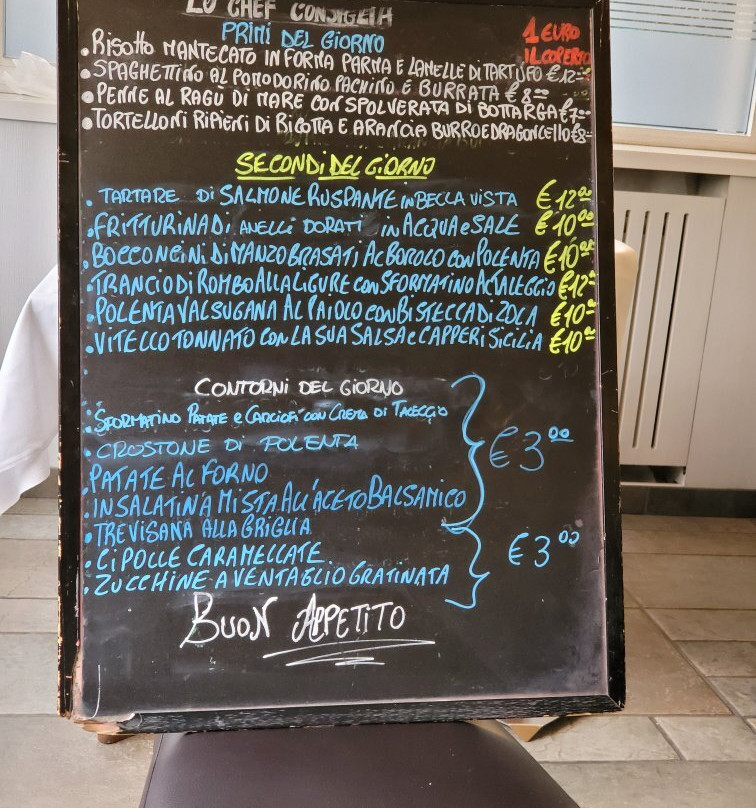 LO CHEF CONSIGLIA
PRIMI DEL GIORNO
1 EURO
IL COPERTO
• RISOTTO MANTECATO IN FORMA PARMA E LAMELLE DI TARTUFO € 12=
• SPAGHETTINO AL POMODORINO PACHINO E BURRATA € 8=
• PENNE AL RAGÙ DI MARE CON SPOLVERATA DI BOTTARGA €7=
• TORTELLONI RIPIENI DI RICOTTA E ARANCIA BURRO E DRAGONCELLO €8=
SECONDI DEL GIORNO
• TARTARE DI SALMONE RUSPANTE IN BELLA VISTA € 12⁰⁰
• FRITTURINA DI ANELLI DORATI IN ACQUA E SALE € 10⁰⁰
• BOCCONCINI DI MANZO BRASATI AL BOROLO CON POLENTA €10⁰⁰
• TRANCIO DI ROMBO ALLA LIGURE CON SFORMATINO AL TALEGGIO €12=
• POLENTA VALSUGANA AL PAIOLO CON BISTECCA DI ZOLA €10=
• VITELLO TONNATO CON LA SUA SALSA E CAPPERI SICILIA €10=
CONTORNI DEL GIORNO
• SFORMATINO PATATE E CARCIOFI CON CREMA DI TALEGGIO
• CROSTONE DI POLENTA
• PATATE AL FORNO
• INSALATINA MISTA ALL'ACETO BALSAMICO
€ 3⁰⁰
• TREVISANA ALLA GRIGLIA
• CIPOLLE CARAMELLATE
• ZUCCHINE A VENTAGLIO GRATINATA
€ 3⁰⁰
BUON APPETITO